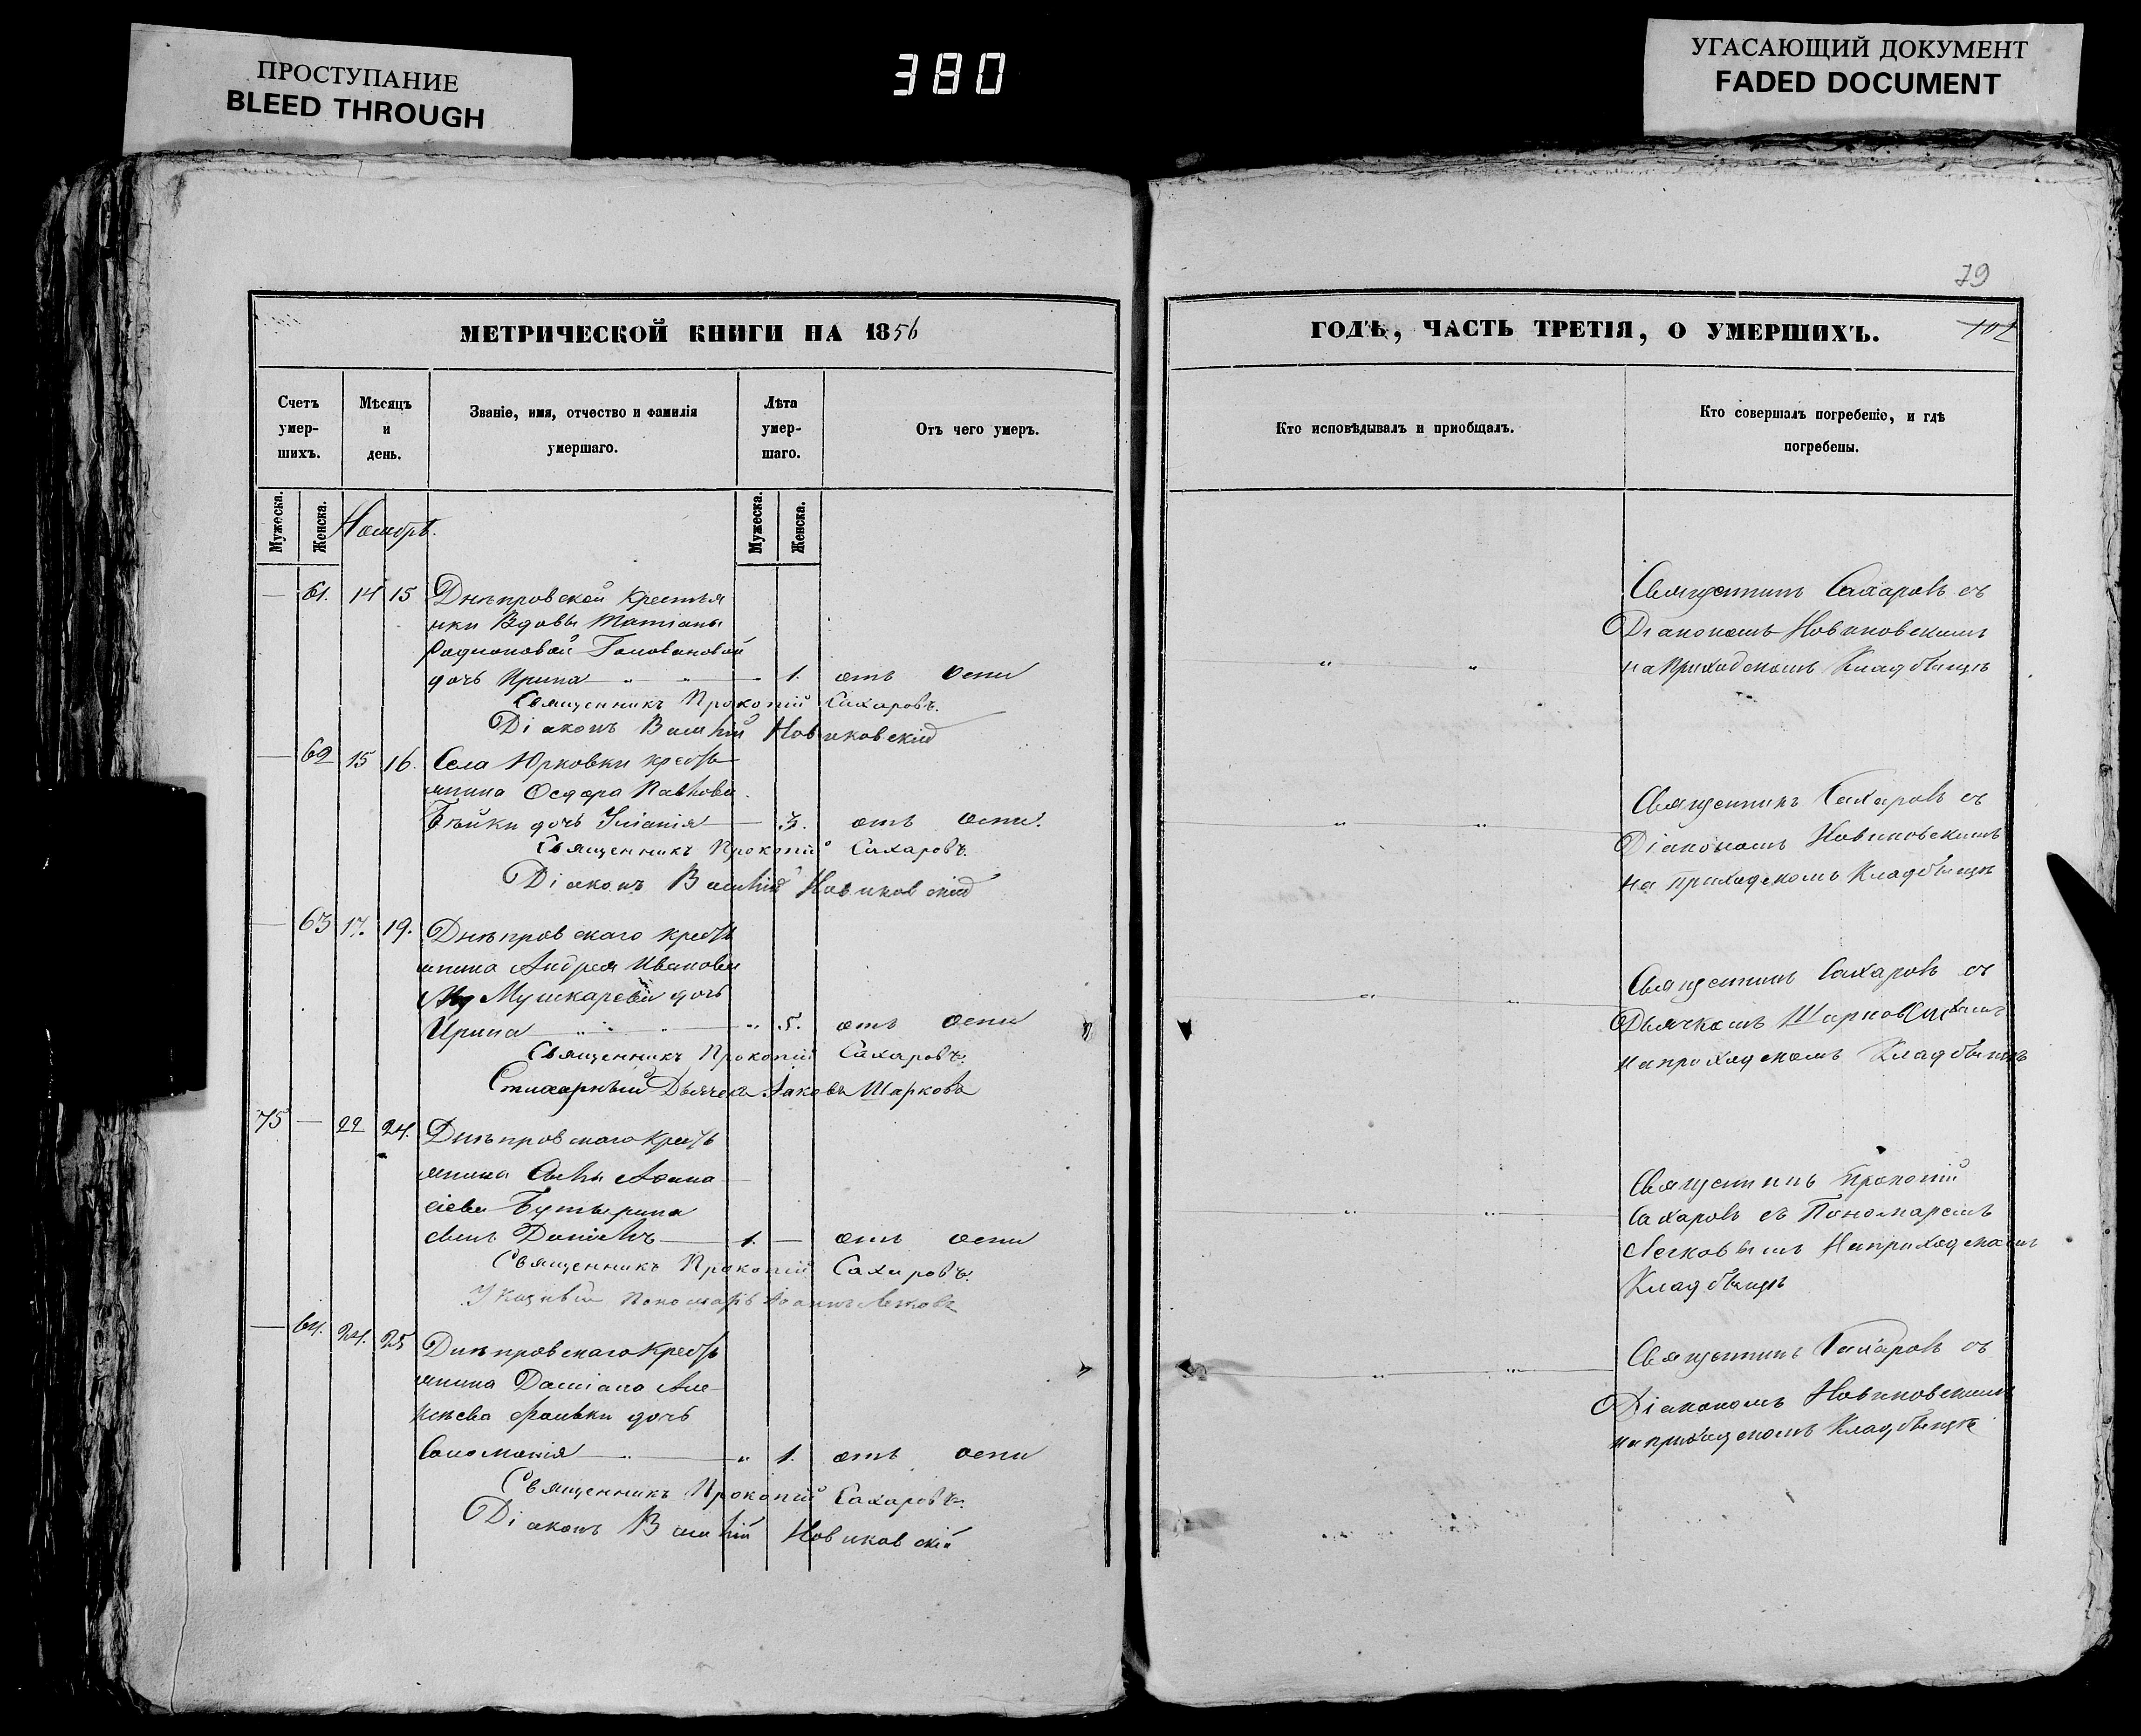 ПРОСТУПАНИЕ
BLEED THROUGH
380
УГАСАЮЩИЙ ДОКУМЕНТ
FADED DOCUMENT
МЕТРИЧЕСКОЙ КНИГИ НА 1856
Счетъ умер-шихъ.
Мѣсяцъ и день.
Званіе, имя, отчество и фамилія умершаго.
Лѣта умер-шаго.
Отъ чего умеръ.
Мужеска. Женска. Мужеска. Женска.
Ноябрь.
— 61. 14 15 Днѣпровской крестья
нки Вдовы Татіаны
Родионовой Головановой
дочь Ирина 1. отъ Оспи
Священникъ Прокопій Сахаровъ.
Діаконъ Василій Новиковскій
— 62 15 16. Села Юрковки кресть
янина Ѳедора Павлова
дочь Уліанія — 3. отъ Оспи.
Священникъ Прокопій Сахаровъ.
Діаконъ Василій Новиковскій
— 63 17. 19. Днѣпровскаго кресть
янина Андрея Иванова
Мушкарева дочь
Ирина 5. отъ Оспи
Священникъ Прокопій Сахаровъ.
Стихарный Дьячекъ Іаковъ Шарковъ
75 — 22 24. Днѣпровскаго кресть
янина Савы Аѳана
сіева Бутырина
сынъ Даніилъ 1. — отъ оспи
Священникъ Прокопій Сахаровъ.
Пономарь Іоаннъ
— 64. 24. 25 Днѣпровскаго кресть
янина Даміана Але
ксѣева дочь
Соломонія 1. отъ оспи
Священникъ Прокопій Сахаровъ.
Діаконъ Василій Новиковскій
79
ГОДѢ, ЧАСТЬ ТРЕТІЯ, О УМЕРШИХЪ.
102
Кто исповѣдывалъ и пріобщалъ.
Кто совершалъ погребеніе, и гдѣ погребены.
Священникъ Сахаровъ съ
Діакономъ Новиковскимъ
на Приходскомъ Кладбищѣ
Священникъ Сахаровъ съ
Діакономъ Новиковскимъ
на приходскомъ Кладбищѣ
Священникъ Сахаровъ съ
Дьячкомъ
на приходскомъ Кладбищѣ
Священникъ Прокопій
Сахаровъ съ Пономаремъ
на приходскомъ
Кладбищѣ
Священникъ Сахаровъ съ
Діакономъ Новиковскимъ
на приходскомъ Кладбищѣ